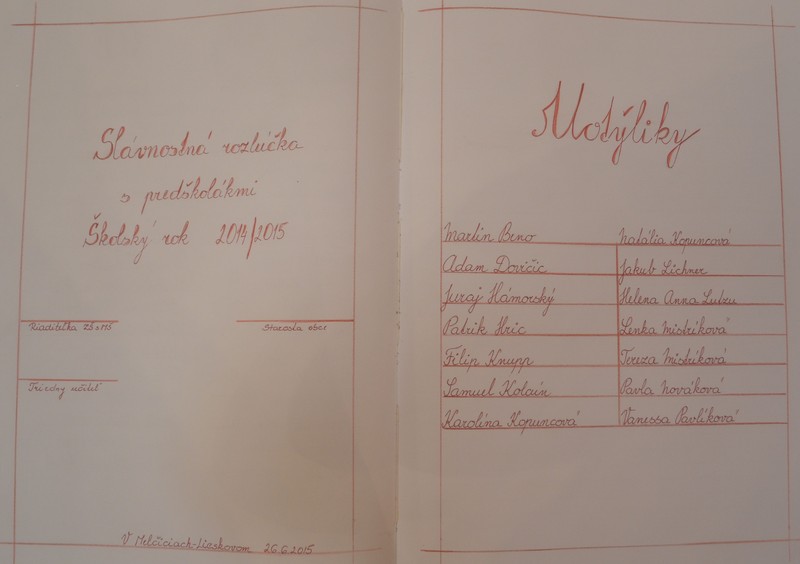 Slávnostná rozlúčka
s predškolákmi
Školský rok 2014/2015
Riaditeľka ZŠ s MŠ
Starosta obce
Triedny učiteľ
V Melčiciach-Lieskovom 26.6.2015
Motýliky
Martin Brno
Adam Dovičic
Juraj Hámorský
Patrik Hric
Filip Knupp
Samuel
Karolína Kopuncová
Natália Kopuncová
Jakub Lichner
Helena Anna
Lenka Mistríková
Tereza Mistríková
Pavla Nováková
Vanessa Pavlíková